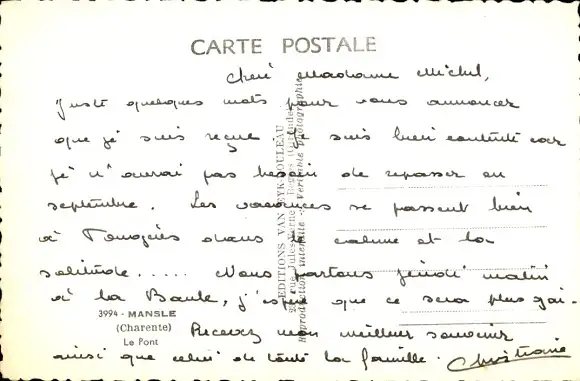 CARTE POSTALE
Chère Madame Michel,
Juste quelques mots pour vous annoncer
que je suis reçue. Je suis bien contente car
je n'aurai pas besoin de repasser en
septembre. Les vacances se passent bien
à dans le calme et la
solitude..... Nous partons jeudi matin
à la Baule, j'espère que ce sera plus gai.
3994 - MANSLE
(Charente)
Le Pont
Recevez mon meilleur souvenir
ainsi que celui de toute la famille. Christiane
EDITIONS VAN EYK-DOULEAU
rue Jules-Ferrer Bègles (Gironde)
Reproduction interdite - Véritable Photographie